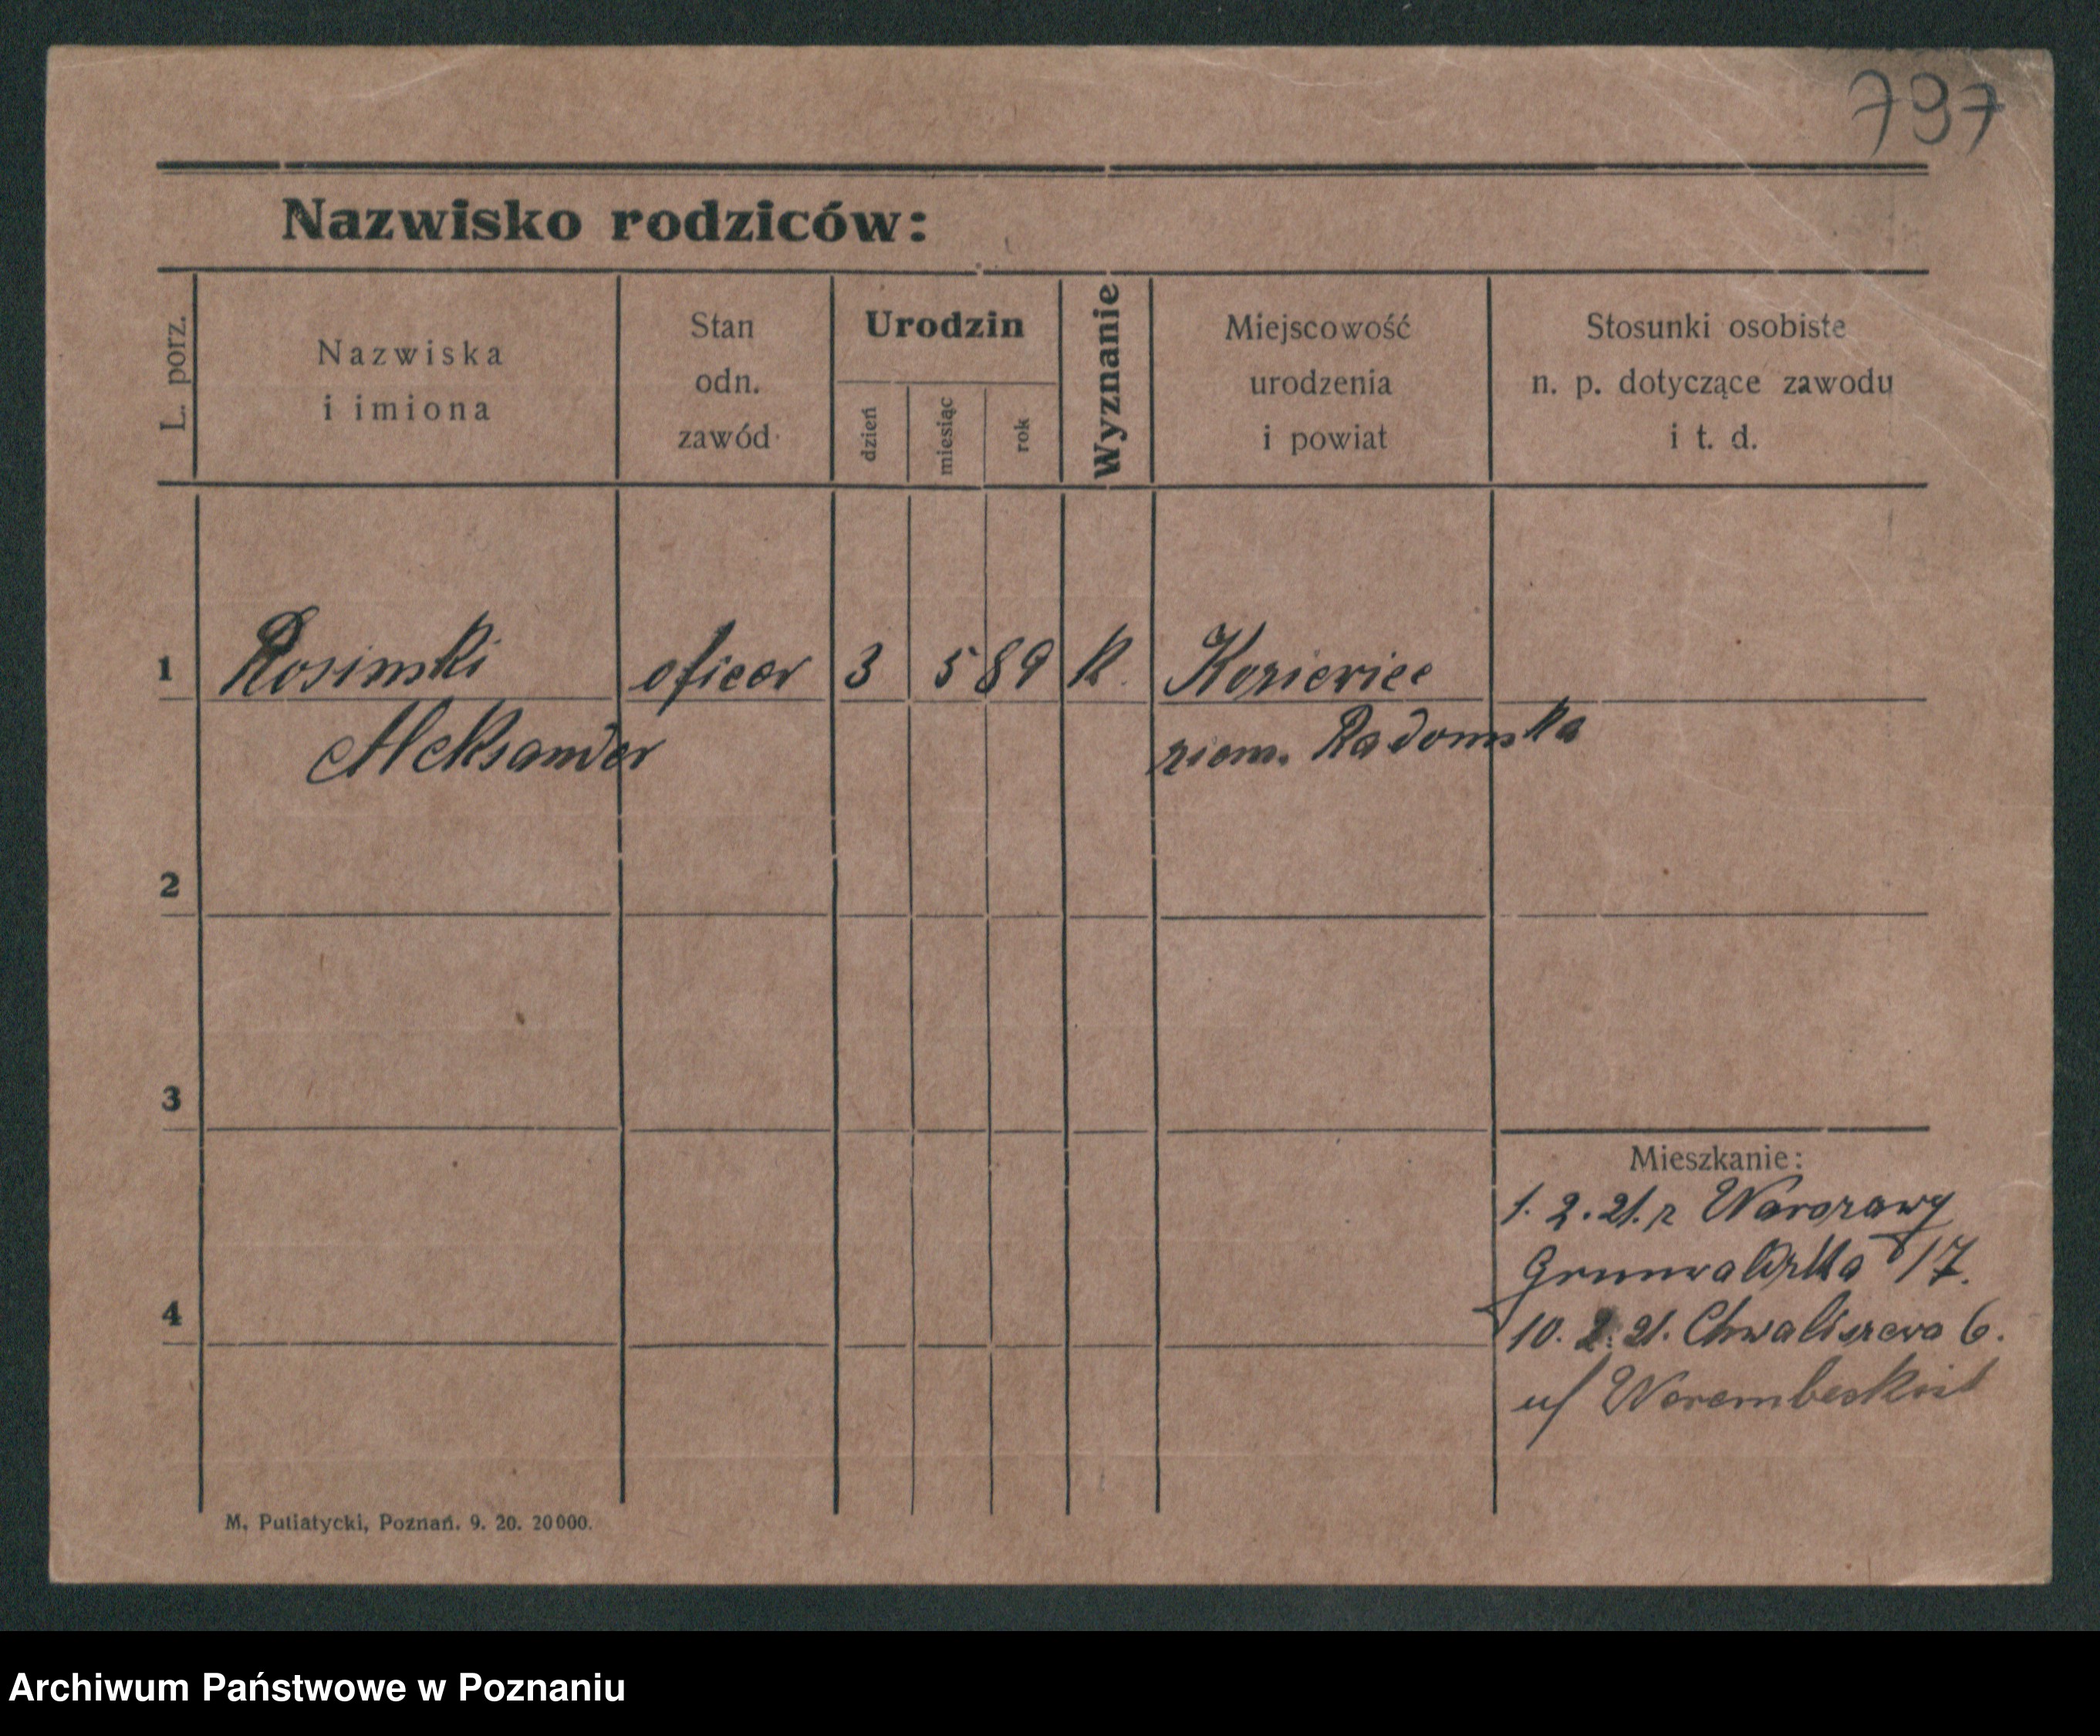 797
Nazwisko rodziców:
L. porz.
Nazwiska
i imiona
Stan
odn.
zawód
Urodzin
dzień
miesiąc
rok
Wyznanie
Miejscowość
urodzenia
i powiat
Stosunki osobiste
n. p. dotyczące zawodu
i t. d.
1 Rosinski oficer 3 5 89 K. Kozienice
Aleksander ziem. Radomska
2
3
4
Mieszkanie:
1. 2. 21. z Warszawy
Grunwaldzka 17.
10. 2. 21. Chwaliszewo 6.
u/
M. Putiatycki, Poznań. 9. 20. 20000.
Archiwum Państwowe w Poznaniu